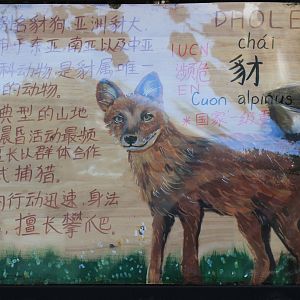 豺狗、亚洲豺犬
于东亚、南亚以及中亚
科动物，是豺属唯一
的动物。
典型的山地
晨昏活动最频
长以群体合作
式捕猎。
行动迅速，身法
，擅长攀爬。
DHOLE
chái
豺
IUCN
濒危
EN
Cuon alpinus
*国家一级